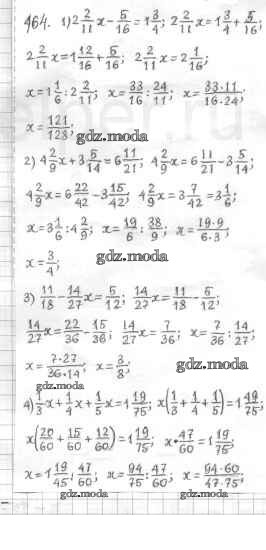 464. 1) 2 2/11 x - 5/16 = 1 3/4; 2 2/11 x = 1 3/4 + 5/16;
2 2/11 x = 1 12/16 + 5/16; 2 2/11 x = 2 1/16;
x = 1 1/6 : 2 2/11; x = 33/16 : 24/11; x = 33·11/16·24;
x = 121/128; gdz.moda
2) 4 2/9 x + 3 5/14 = 6 11/21; 4 2/9 x = 6 11/21 - 3 5/14;
4 2/9 x = 6 22/42 - 3 15/42; 4 2/9 x = 3 7/42 = 3 1/6;
x = 3 1/6 : 4 2/9; x = 19/6 : 38/9; x = 19·9/6·3;
x = 3/4; gdz.moda
3) 11/18 - 14/27 x = 5/12; 14/27 x = 11/18 - 5/12;
14/27 x = 22/36 - 15/36; 14/27 x = 7/36; x = 7/36 : 14/27;
x = 7·27/36·14; x = 3/8; gdz.moda
4) 1/3 x + 1/4 x + 1/5 x = 1 19/75; x(1/3 + 1/4 + 1/5) = 1 19/75;
x(20/60 + 15/60 + 12/60) = 1 19/75; x · 47/60 = 1 19/75;
gdz.moda
x = 1 19/45 : 47/60; x = 94/75 : 47/60; x = 94·60/47·75;
gdz.moda gdz.moda